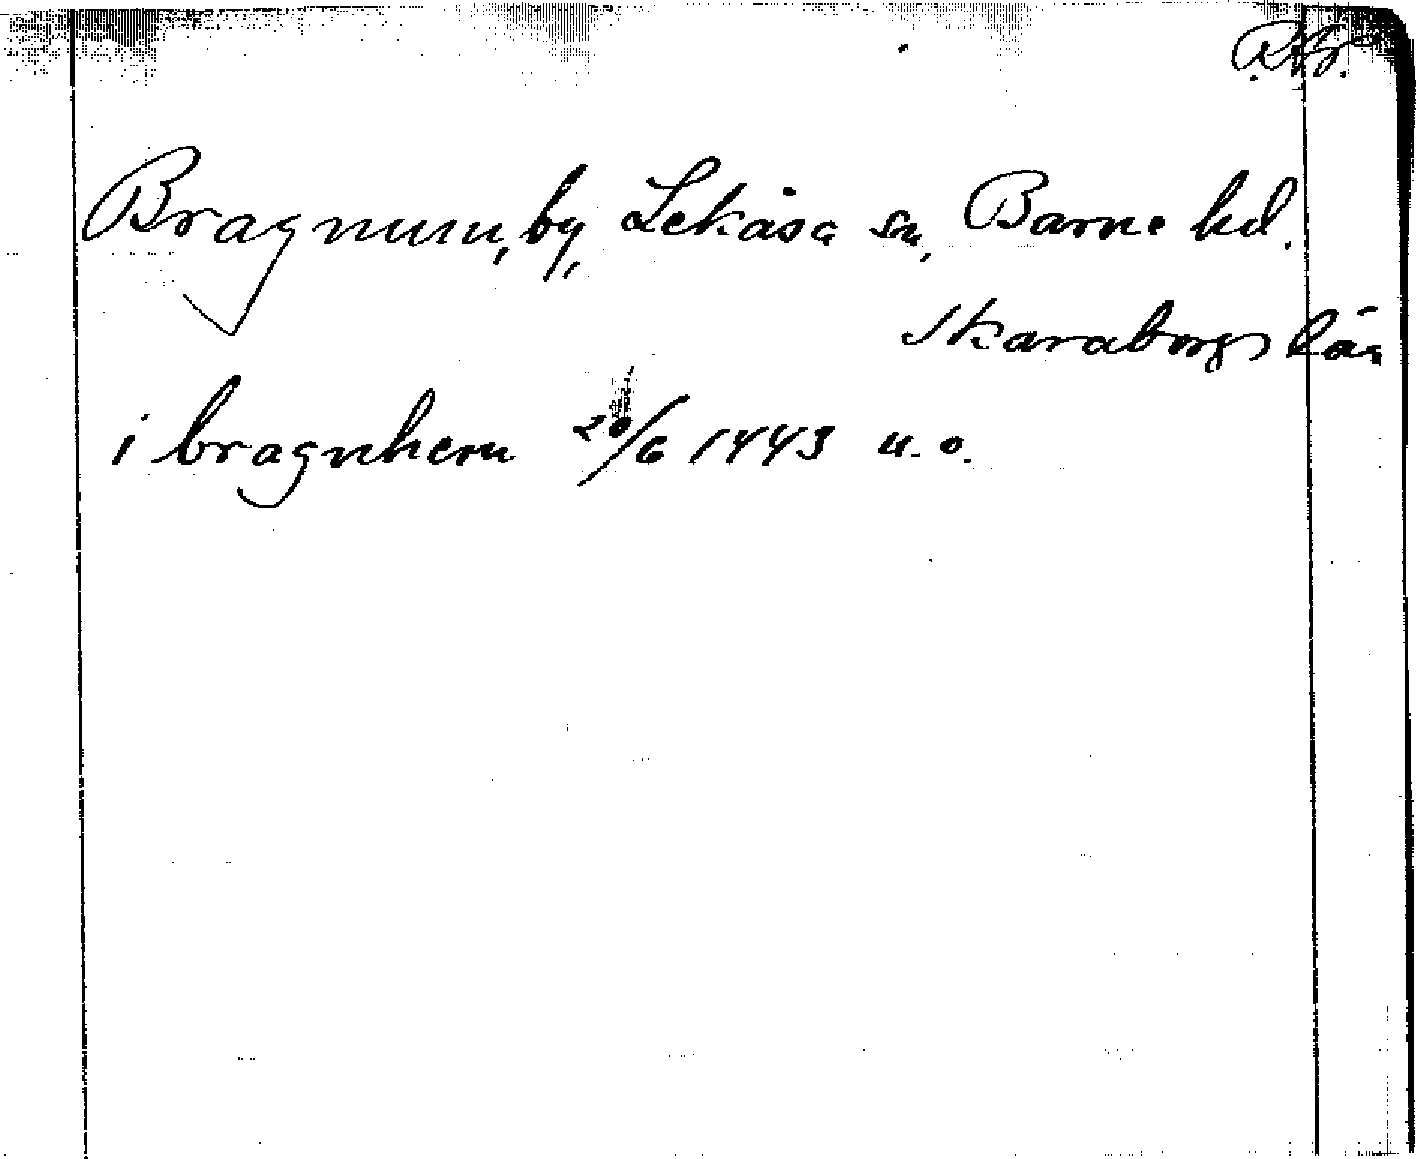 Bragnum, by, Lekåsa sn, Barne hd.
Skaraborgs län
i bragnhem 20/6 1443 u. o.